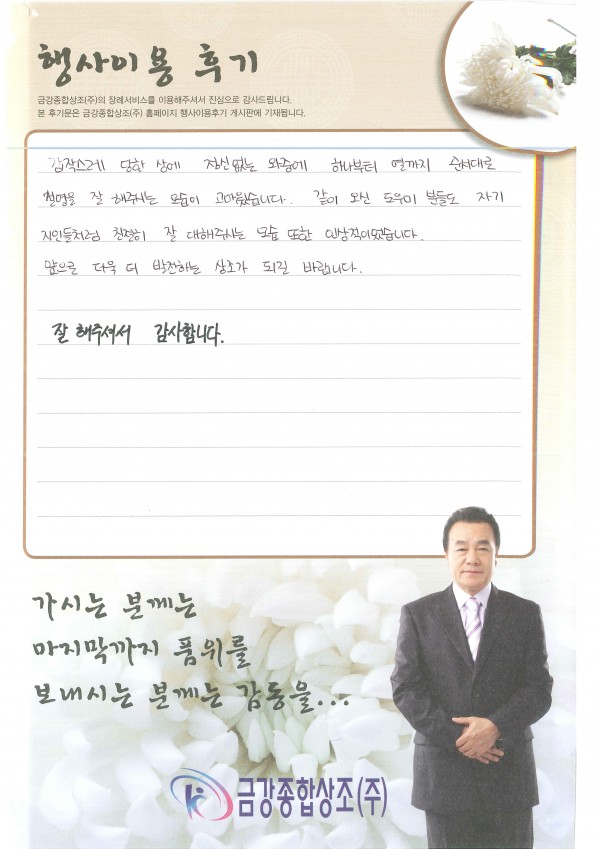 행사이용 후기
금강종합상조(주)의 장례서비스를 이용해주셔서 진심으로 감사드립니다.
본 후기문은 금강종합상조(주) 홈페이지 행사이용후기 게시판에 기재됩니다.
갑작스레 당한 상에 정신없는 와중에 하나부터 열까지 순서대로
설명을 잘 해주시는 모습이 고마웠습니다. 같이 오신 도우미 분들도 자기
지인들처럼 친절히 잘 대해주시는 모습 또한 인상적이었습니다.
앞으로 더욱 더 발전하는 상조가 되길 바랍니다.
잘 해주셔서 감사합니다.
가시는 분께는
마지막까지 품위를
보내시는 분께는 감동을...
금강종합상조(주)